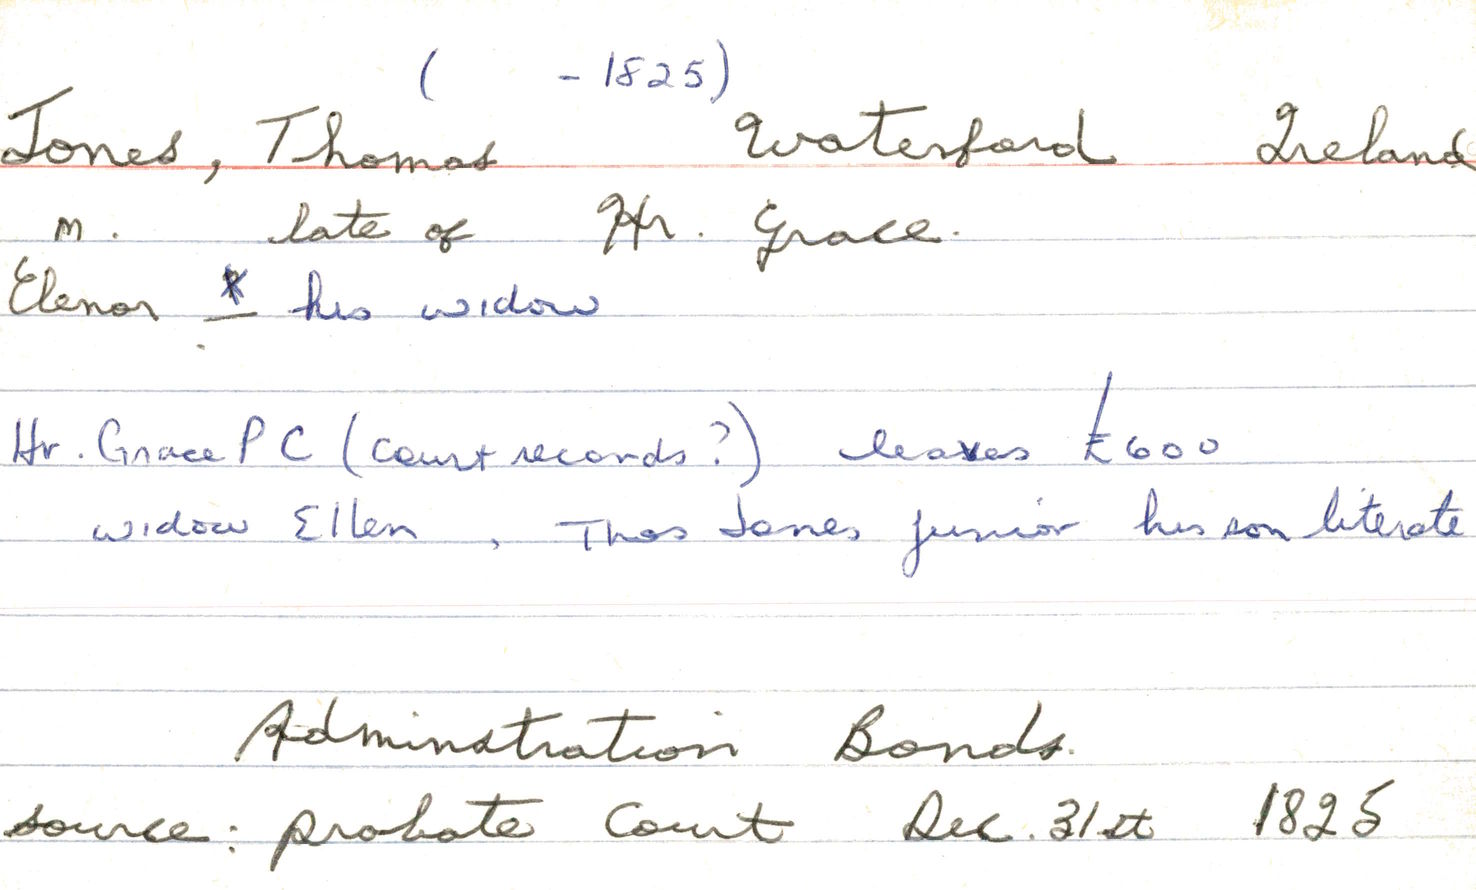 ( - 1825)
Jones, Thomas Waterford Ireland
m. late of Hr. Grace.
Elenor * his widow
Hr. Grace P C (court records?) leaves £600
widow Ellen , Thos Jones junior his son literate
Adminstration Bonds.
source: probate Court Dec. 31st 1825